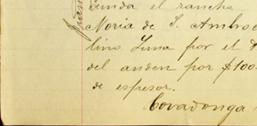 cunda el rancho
Noria de S. Ambro
lino Luna por el
del anden por $100
de espesor.
Covadonga